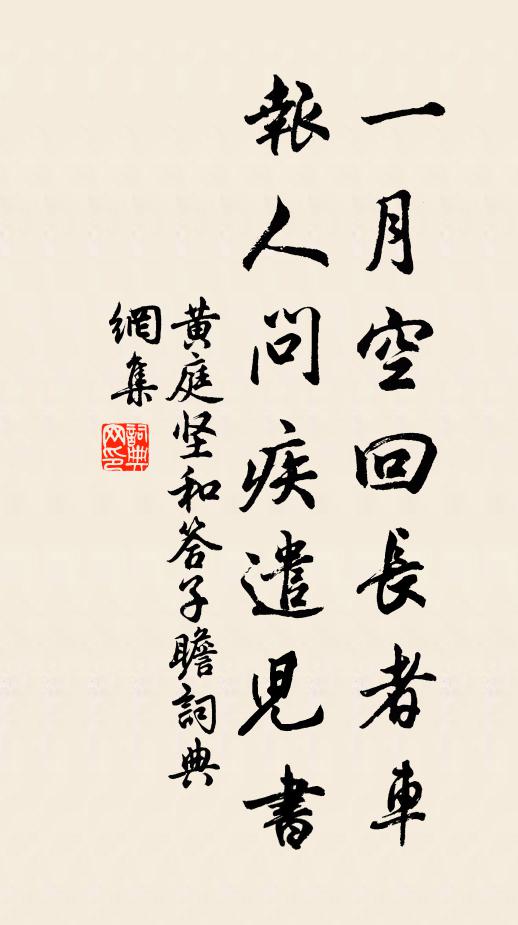 一月空回長者車
報人問疾遣兒書
黃庭坚和答子瞻詞典
網集
詞典
网印